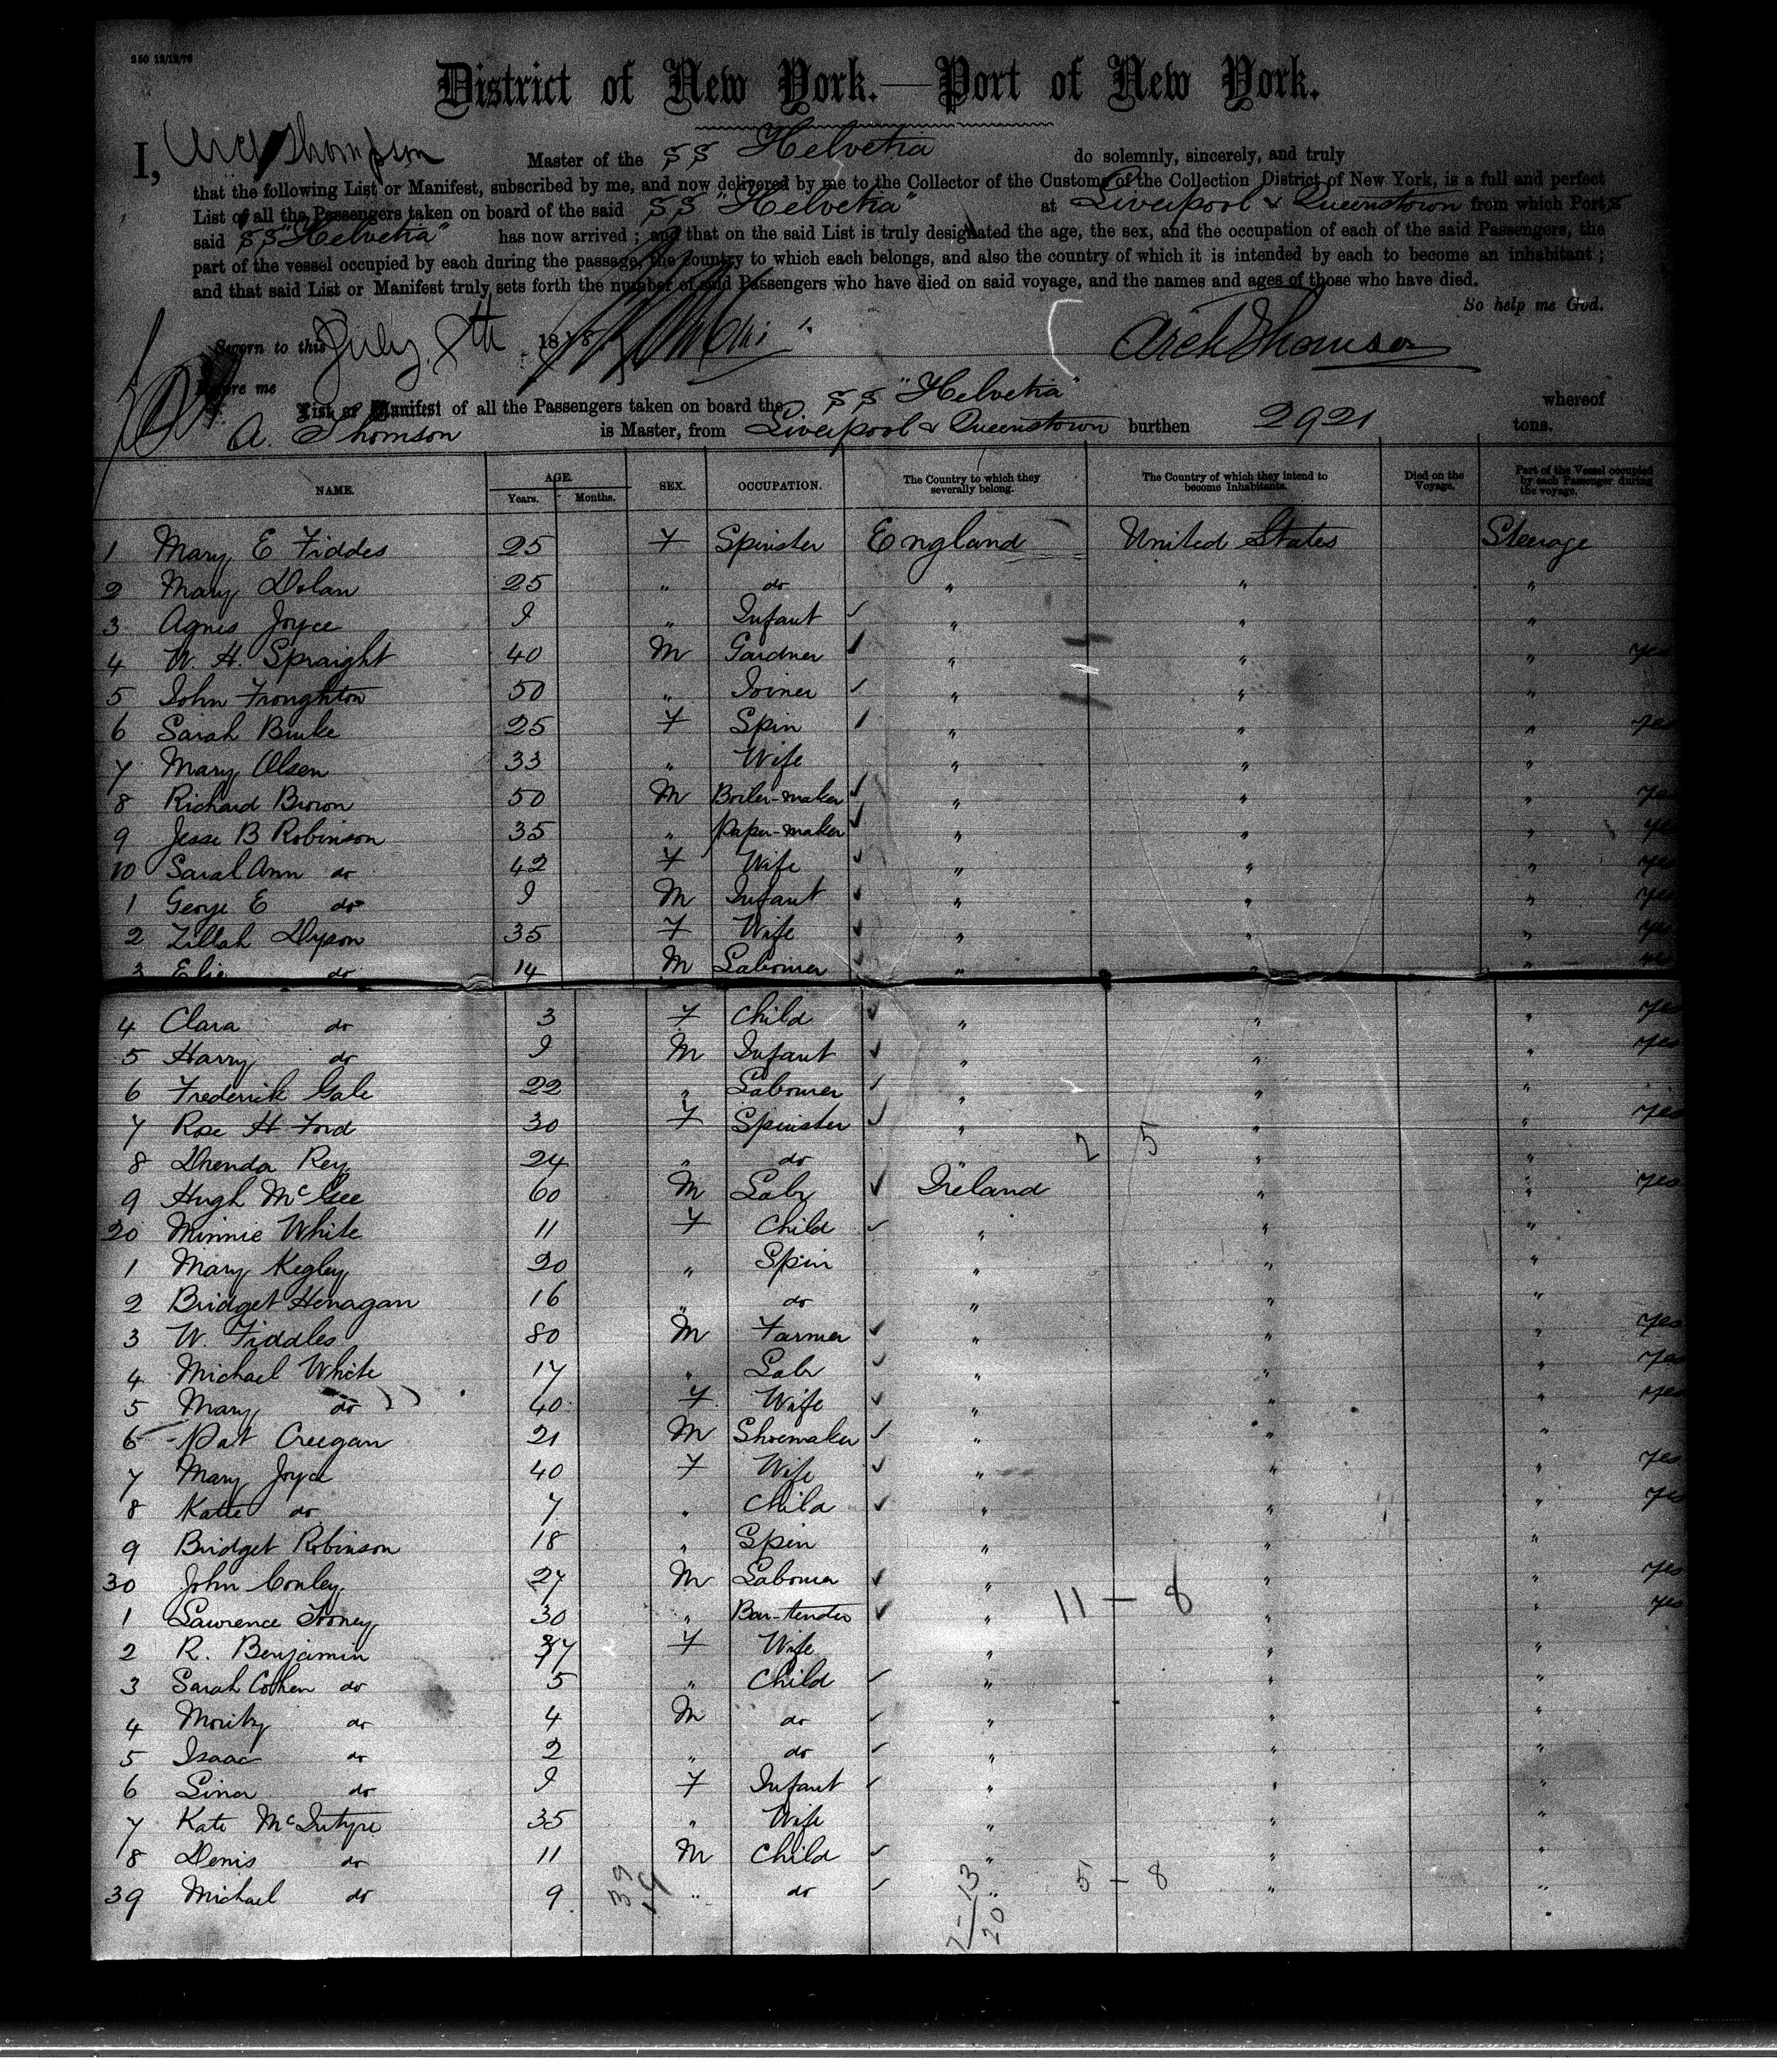 250 12/12/76
District of New York.—Port of New York.
I, Arch Thompson Master of the SS Helvetia do solemnly, sincerely, and truly
that the following List or Manifest, subscribed by me, and now delivered by me to the Collector of the Customs of the Collection District of New York, is a full and perfect
List of all the Passengers taken on board of the said SS "Helvetia" at Liverpool & Queenstown from which Ports
said SS "Helvetia" has now arrived; and that on the said List is truly designated the age, the sex, and the occupation of each of the said Passengers, the
part of the vessel occupied by each during the passage, the country to which each belongs, and also the country of which it is intended by each to become an inhabitant;
and that said List or Manifest truly sets forth the number of said Passengers who have died on said voyage, and the names and ages of those who have died.
So help me God.
Sworn to this July 8th 1878 Arch Thomson
Before me
List or Manifest of all the Passengers taken on board the SS "Helvetia" whereof
A. Thomson is Master, from Liverpool & Queenstown burthen 2921 tons.
NAME. AGE. Years. Months. SEX. OCCUPATION. The Country to which they severally belong. The Country of which they intend to become Inhabitants. Died on the Voyage. Part of the Vessel occupied by each Passenger during the voyage.
1 Mary E Fiddes 25 F Spinster England United States Steerage
2 Mary Dolan 25 " do " " "
3 Agnes Joyce 9 " Infant " " "
4 W. H. Spraight 40 M Gardner " " " yes
5 John Troughton 50 " Joiner " " "
6 Sarah Burke 25 F Spin " " " yes
7 Mary Olsen 33 " Wife " " "
8 Richard Brown 50 M Boiler-maker " " " yes
9 Jesse B Robinson 35 " Paper-maker " " " yes
10 Sarah Ann do 42 F Wife " " " yes
1 George E do 9 M Infant " " " yes
2 Zillah Dyson 35 F Wife " " " yes
3 Elie do 14 M Labourer " "
4 Clara do 3 F Child " " " yes
5 Harry do 9 M Infant " " " yes
6 Frederick Gale 22 " Labourer " " "
7 Rose H Ford 30 F Spinster " " " yes
8 Drenda Rey 24 " do " 2 5 " "
9 Hugh McGee 60 M Labr Ireland " " yes
20 Minnie White 11 F Child " " "
1 Mary Kegley 20 " Spin " " "
2 Bridget Henagan 16 " do " " "
3 W. Fiddles 80 M Farmer " " " yes
4 Michael White 17 " Labr " " " yes
5 Mary do 40 F Wife " " " yes
6 Pat Creegan 21 M Shoemaker " " "
7 Mary Joyce 40 F Wife " " " yes
8 Katie do 7 " Child " " " yes
9 Bridget Robinson 18 " Spin " " "
30 John Conley 27 M Labourer " " " yes
1 Lawrence Tooney 30 " Bar-tender " 11 - 8 " " yes
2 R. Benjamin 37 F Wife " " "
3 Sarah Cohen do 5 " Child " " "
4 Moritz do 4 M do " " "
5 Isaac do 2 " do " " "
6 Lina do 9 F Infant " " "
7 Kate McIntyre 35 " Wife " " "
8 Denis do 11 M Child " " "
39 Michael do 9 " do " 5 - 8 " "
39
19
7-13
20